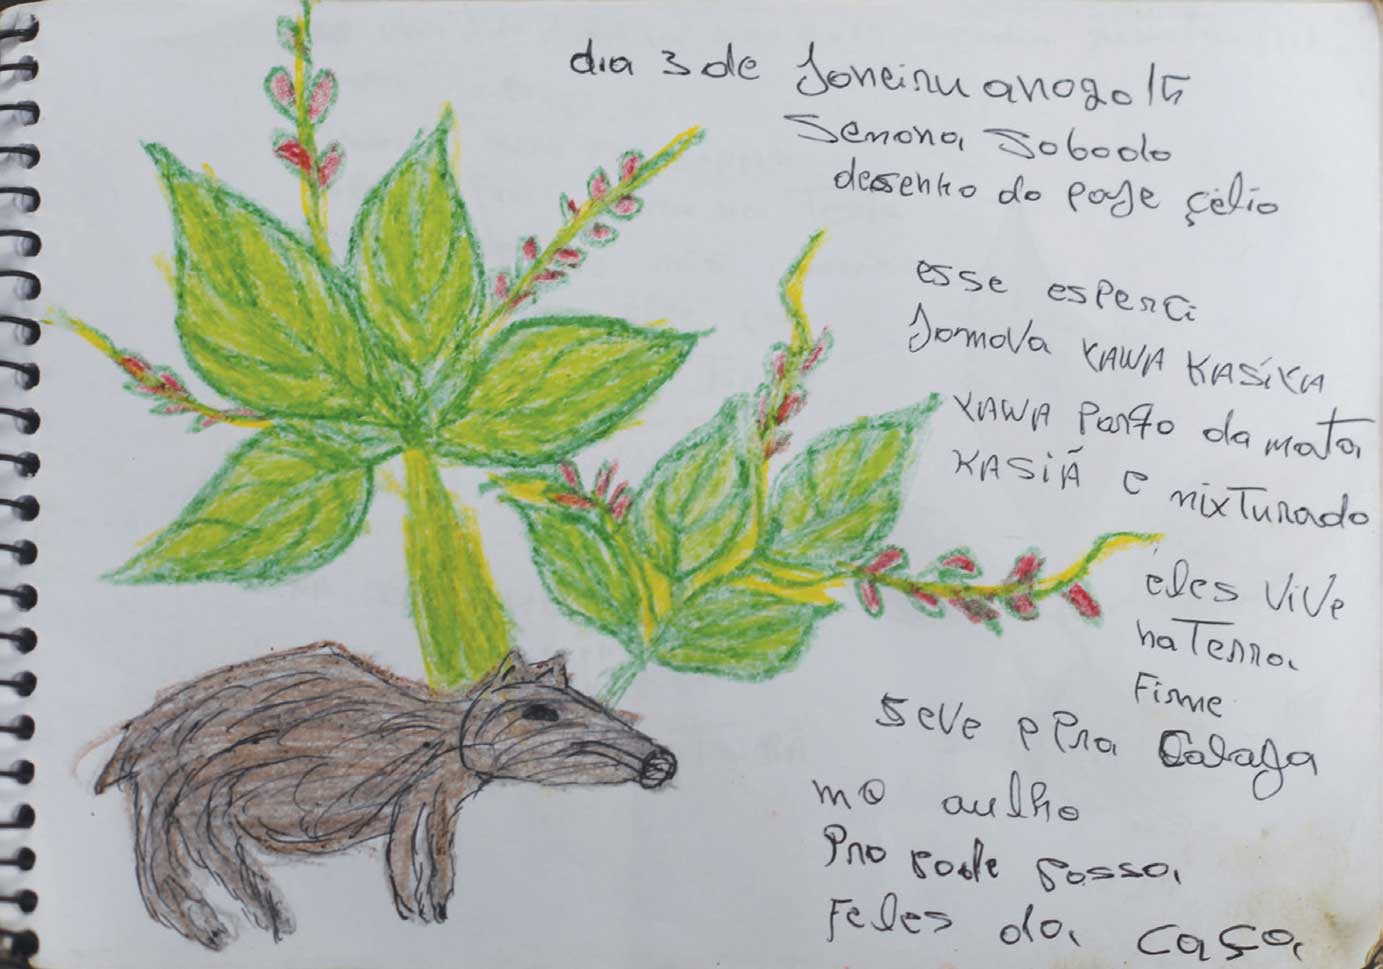 dia 3 de Joneinu anogo 15
Semona, Sobodo
desenho do paje çelio
esse espenci
Jomova KAWA KASÍKA
KAWA Ponfo da mata,
KASIÃ e mixTunado
eles ViVe
na Tenna,
Finme
Seve p Pna Calafa
mo aulho
Pno pode possa,
Feles da, caça,